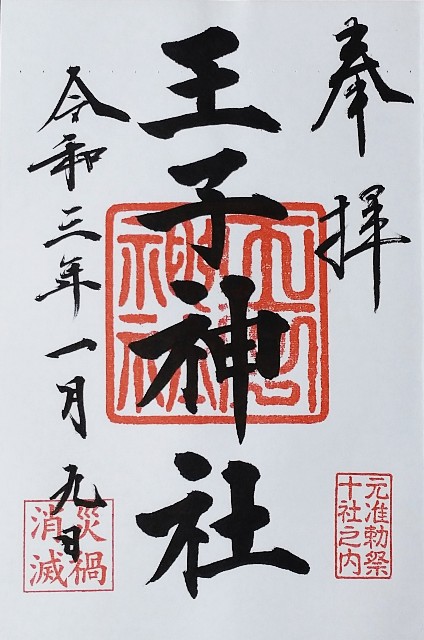 奉拝
元准勅祭
十社之内
王子神社
令和三年一月九日
災禍
消滅